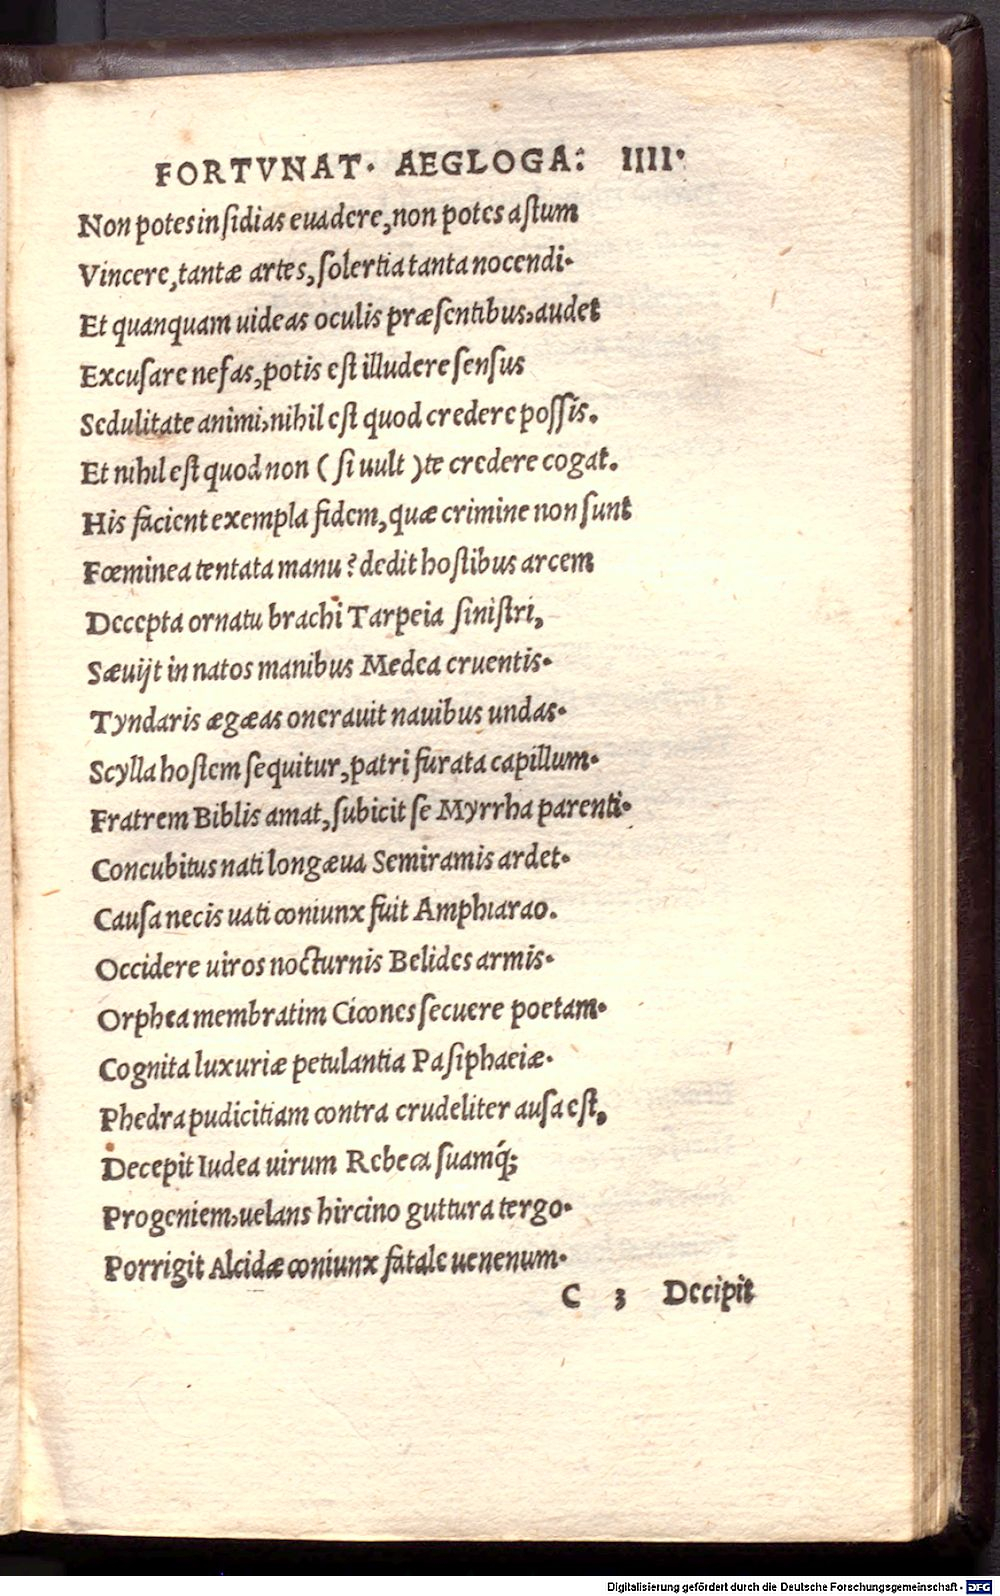 FORTVNAT. AEGLOGA: IIII.
Non potes insidias euadere, non potes astum
Vincere, tantæ artes, solertia tanta nocendi.
Et quanquam uideas oculis præsentibus, audet
Excusare nefas, potis est illudere sensus
Sedulitate animi, nihil est quod credere possis.
Et nihil est quod non ( si uult ) te credere cogat.
His facient exempla fidem, quæ crimine non sunt
Fœminea tentata manu? dedit hostibus arcem
Decepta ornatu brachi Tarpeia sinistri,
Sæuijt in natos manibus Medea cruentis.
Tyndaris ægæas onerauit nauibus undas.
Scylla hostem sequitur, patri furata capillum.
Fratrem Biblis amat, subicit se Myrrha parenti.
Concubitus nati longæua Semiramis ardet.
Causa necis uati coniunx fuit Amphiarao.
Occidere uiros nocturnis Belides armis.
Orphea membratim Cicones secuere poetam.
Cognita luxuriæ petulantia Pasiphaeiæ.
Phedra pudicitiam contra crudeliter ausa est,
Decepit Iudea uirum Rebeca suamq́;
Progeniem, uelans hircino guttura tergo.
Porrigit Alcidæ coniunx fatale uenenum.
C 3 Decipit
Digitalisierung gefördert durch die Deutsche Forschungsgemeinschaft - DFG